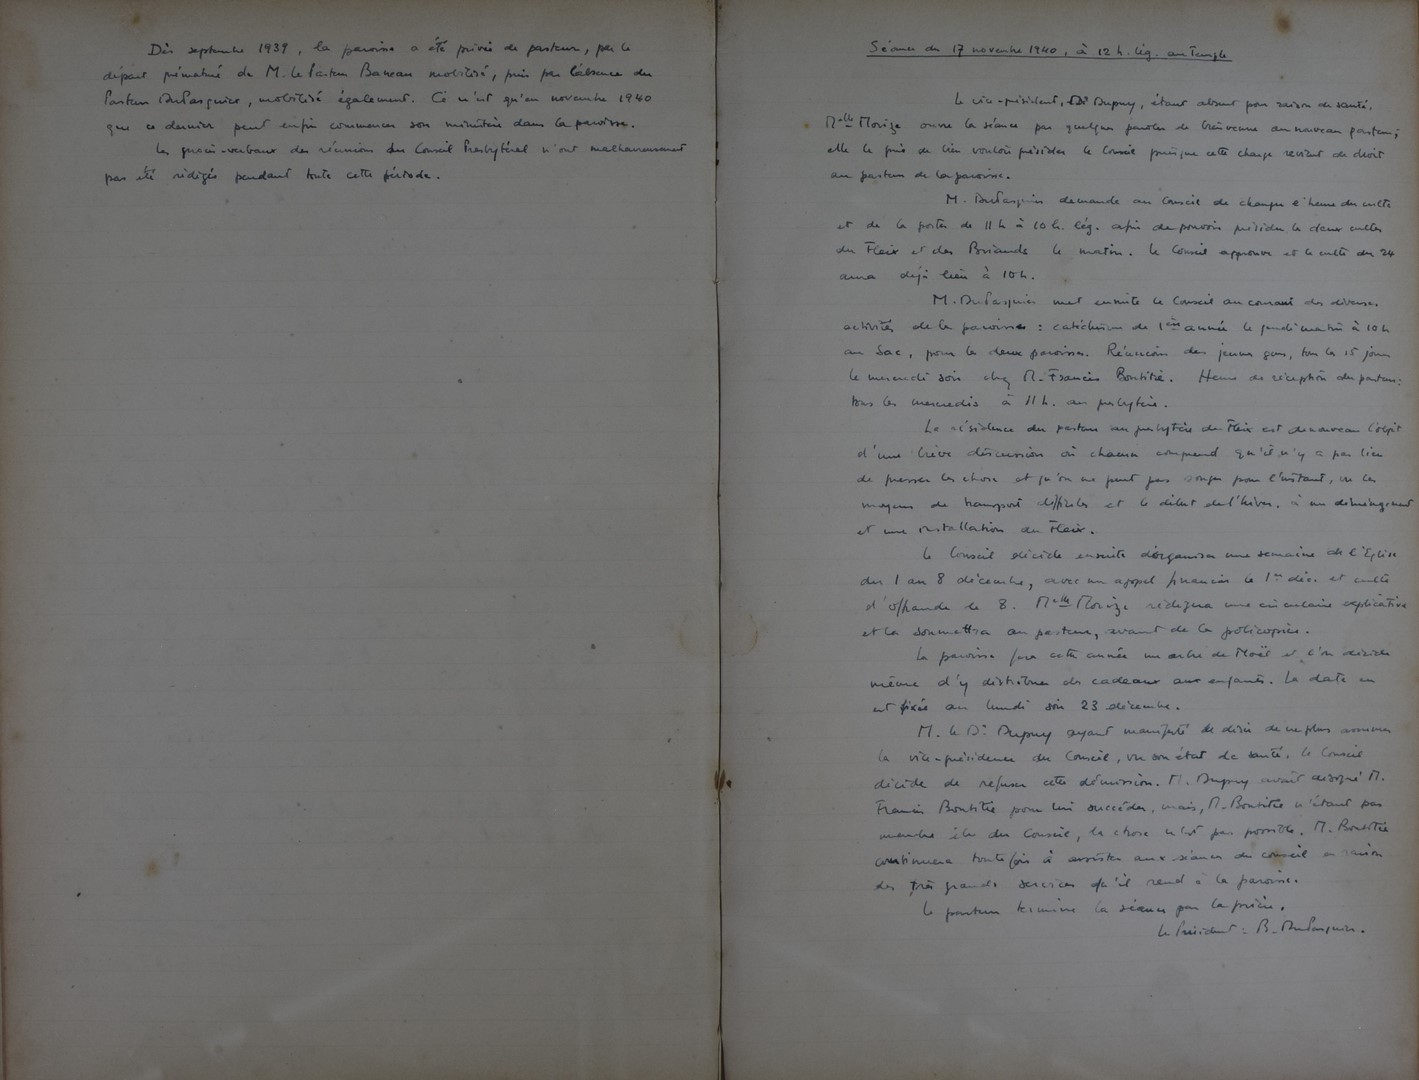 Dès septembre 1939, la paroisse a été privée de pasteur, par le
départ prématuré de M. le Pasteur mobilisé, puis par l'absence du
Pasteur DuPasquier, mobilisé également. Ce n'est qu'en novembre 1940
que ce dernier peut enfin commencer son ministère dans la paroisse.
Les procès-verbaux des réunions du Conseil Presbytéral n'ont malheureusement
pas été rédigés pendant toute cette période.
Séance du 17 novembre 1940, à 12 h. lég. au Temple
Le vice-président, Dr Dupuy, étant absent pour raison de santé,
Melle Morize ouvre la séance par quelques paroles de bienvenue au nouveau pasteur;
elle le prie de bien vouloir présider le Conseil puisque cette charge revient de droit
au pasteur de la paroisse.
M. DuPasquier demande au Conseil de changer l'heure du culte
et de la porter de 11 h à 10 h. lég. afin de pouvoir présider les deux cultes
du Fleix et des Briands le matin. Le Conseil approuve et le culte du 24
aura déjà lieu à 10 h.
M. DuPasquier met ensuite le Conseil au courant des diverses
activités de la paroisse : catéchisme de 1ère année le jeudi matin à 10 h
au Sac, pour les deux paroisses. Réunions des jeunes gens, tous les 15 jours
le mercredi soir chez M. Francis Bontitie. Heure de réception du pasteur:
tous les mercredis à 11 h. au presbytère.
La résidence du pasteur au presbytère du Fleix est de nouveau l'objet
d'une brève discussion où chacun comprend qu'il n'y a pas lieu
de presser les choses et qu'on ne peut pas songer pour l'instant, vu les
moyens de transport difficiles et le début de l'hiver, à un déménagement
et une installation au Fleix.
Le Conseil décide ensuite d'organiser une semaine de l'Eglise
du 1 au 8 décembre, avec un appel financier le 1er déc. et culte
d'offrande le 8. Melle Morize rédigera une circulaire explicative
et la soumettra au pasteur, avant de la polycopier.
La paroisse fera cette année un arbre de Noël et l'on décide
même d'y distribuer des cadeaux aux enfants. La date en
est fixée au lundi soir 23 décembre.
M. le Dr Dupuy ayant manifesté le désir de ne plus assumer
la vice-présidence du Conseil, vu son état de santé, le Conseil
décide de refuser cette démission. M. Dupuy avait désigné M.
Francis Bontitie pour lui succéder, mais, M. Bontitie n'étant pas
membre élu du Conseil, la chose n'est pas possible. M. Bontitie
continuera toutefois à assister aux séances du conseil en raison
des très grands services qu'il rend à la paroisse.
Le pasteur termine la séance par la prière.
Le Président : B. DuPasquier.